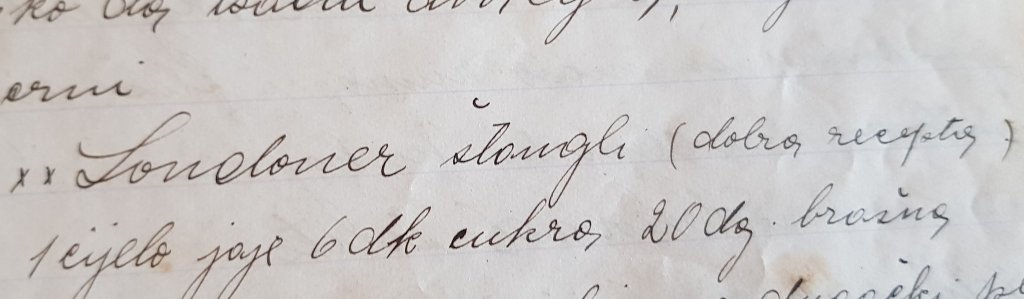 ko da
erni
xx Londoner štangli (dobra recepta)
1 cijelo jaje 6 dk cukra 20 dg. brašna